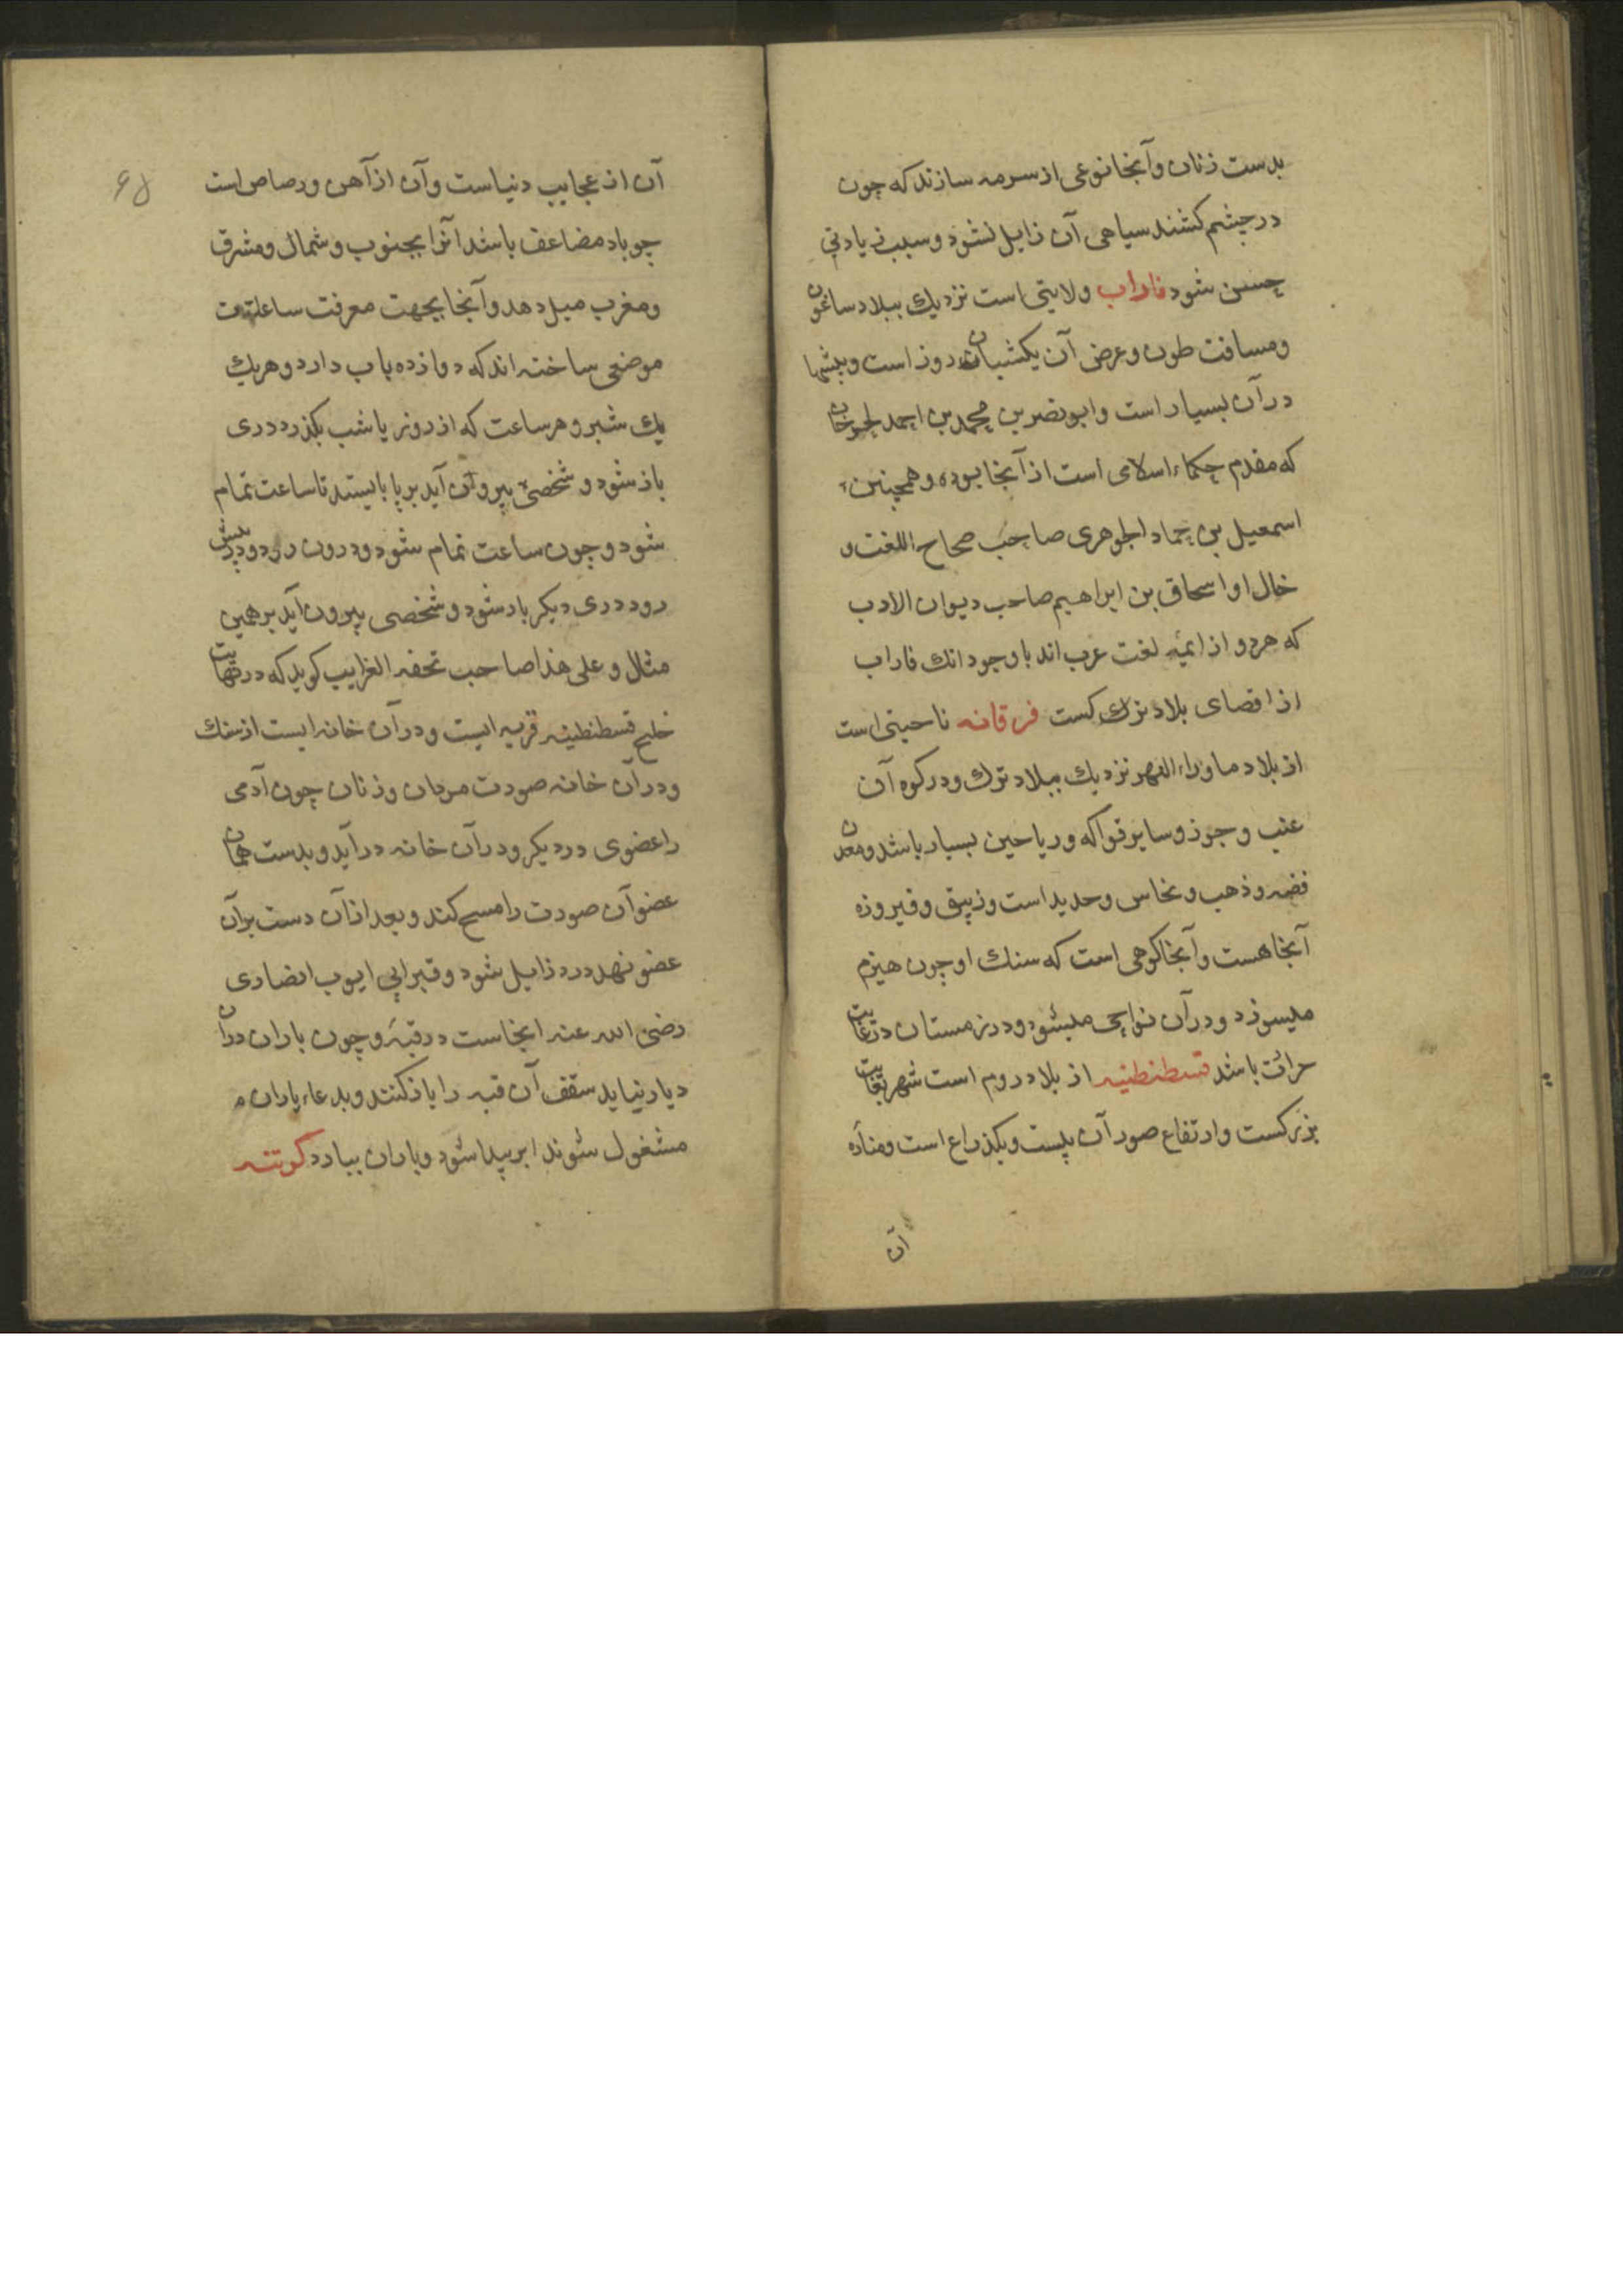 بدست زنان و آنجا نوعی از سرمه سازند که چون
در چشم کشند سیاهی آن زایل نشود و سبب زیادتی
حسن شود فاراب ولایتی است نزدیک ببلاد ساغون
ومسافت طول وعرض آن یکشبان روز است وبیشها
در آن بسیار است وابونصر بن محمد بن احمد
که مقدم حکماء اسلامی است از آنجا بوده وهمچنین
اسمعیل بن حماد الجوهری صاحب صحاح اللغت و
خال او اسحاق بن ابراهیم صاحب دیوان الادب
که هردو از ایمه لغت عرب اند باوجود انک فاراب
از اقصای بلاد ترک کست فرقانه ناحیتی است
از بلاد ماوراء النهر نزدیک ببلاد ترک ودر کوه آن
عنب وجوز وسایر فواکه وریاحین بسیار باشد ومعدن
فضه وذهب ونحاس وحدید است وزیبق وفیروزه
آنجا هست وآنجا کوهی است که سنک او چون هیزم
میسوزد ودر آن نواحی میشود ودر زمستان در غایت
حرائت باشد قسطنطنیه از بلاد روم است شهر بغایت
بزرکست وارتفاع صور آن بیست ویکذراع است ومناره
آن
آن از عجایب دنیاست وآن از آهن ورصاص است
چو باد مضاعف باشد آنرا بجنوب وشمال ومشرق
ومغرب میل دهد وآنجا بجهت معرفت ساعت
موضعی ساخته اند که دوازده باب دارد وهریک
یک شبر وهر ساعت که از روز یا شب بکذرد دری
باز شود وشخصی بیرون آید برپا بایستد تا ساعت تمام
شود وچون ساعت تمام شود ودرون رود ودر پیش
رود دری دیکر باز شود وشخصی بیرون آید برهمین
مثال وعلی هذا صاحب تحفه الغرایب کوید که در نهایت
خلیج قسطنطنیه قریه ایست ودر آن خانه ایست از سنک
ودر آن خانه صورت مردان وزنان چون آدمی
را عضوی درد یکرود در آن خانه در آید وبدست همان
عضو آن صورت را مسح کند وبعد از آن دست بر آن
عضو نهد درد زایل شود وقبر ابی ایوب انصاری
رضی الله عنه اینجاست در قبه وچون باران در آن
دیار نیاید سقف آن قبه را باز کنند وبدعاء باران
مشغول شوند ابر پیدا شود وباران ببارد کوتنه